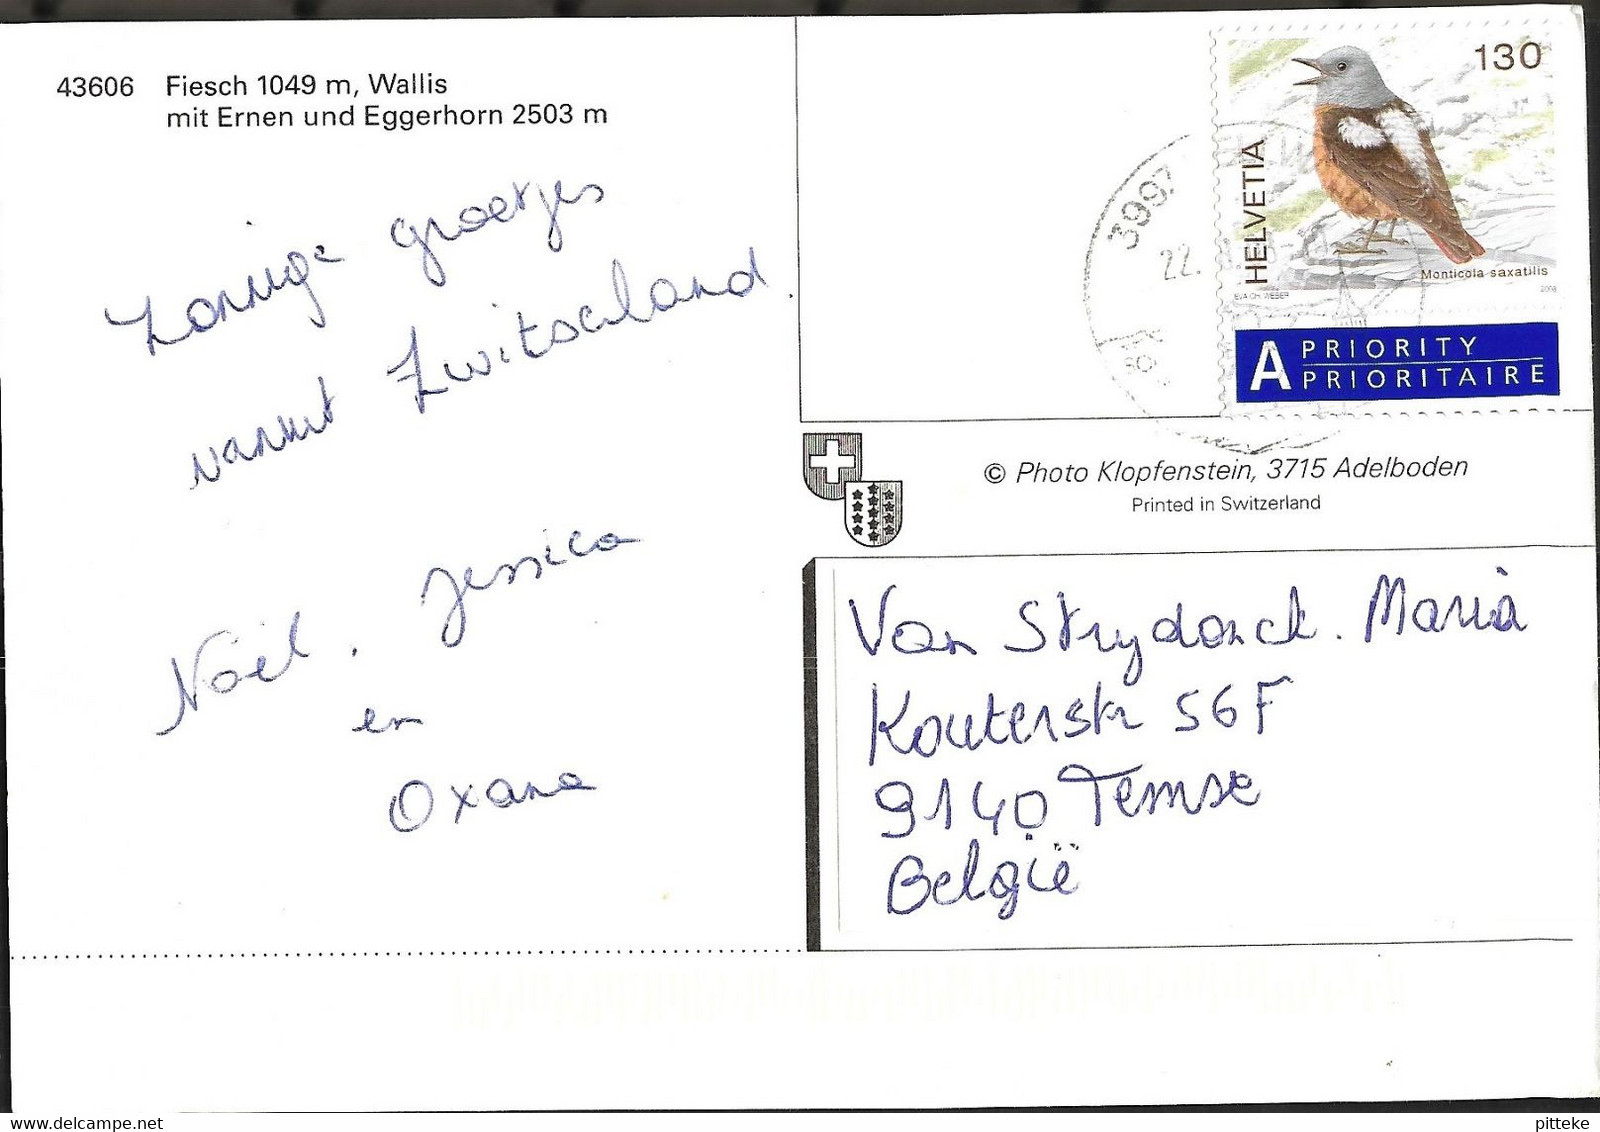 43606 Fiesch 1049 m, Wallis
mit Ernen und Eggerhorn 2503 m
Zonnige groetjes
vanuit Zwitserland.
Noël, Jessica
en
Oxana
130
HELVETIA
Monticola saxatilis
EVA CH. WEBER
2008
A PRIORITY
PRIORITAIRE
3997
22.
© Photo Klopfenstein, 3715 Adelboden
Printed in Switzerland
Van Strydonck. Maria
Kouterstr 56F
9140 Temse
België
delcampe.net
pitteke